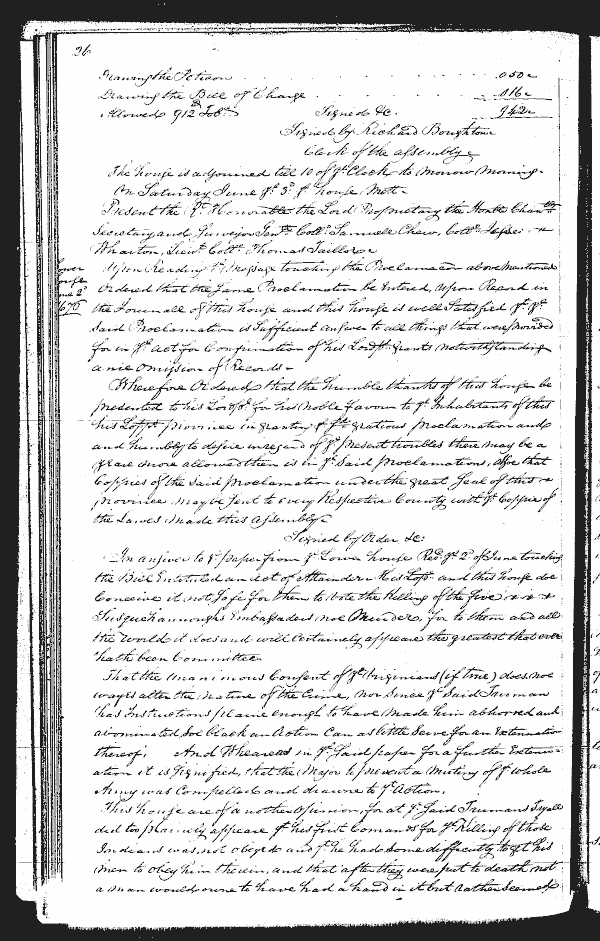 26
Drawing the Petition . . . . . . . 050 -
Drawing the Bill of Charge . . . . 016 -
Allowed 912 Tob: Signed &c. 942 -
Signed by Richard Boughton
Clerk of the assembly -
The house is adjourned till 10 of ye Clock to Morrow Morning -
On Saturday June ye 3d ye house Mett -
Present the Rt Honorable the Lord Proprietary the Honble Chan
Secretary and Surveyor Genll Collo Samuell Chew, Collo Jesse
Wharton, Lieut Collo Thomas Taillor -
Lower
house
June 2d
1676
Upon Reading ye Message touching the Proclamacon abovementioned
Ordered that the same Proclamation be Entered upon Record in
the Journall of this house and this house is well Satisfied yt ye
said Proclamation is Sufficient answer to all things that were provided
for in ye act for Confirmation of his Lordsps grants notwithstanding
a nice omission of Records -
Wherefore Ordered that the humble thanks of this house be
presented to his Lordsp for his Noble favour to ye Inhabitants of this
his Lopps province in granting ye sd gratious proclamation and
and humbly to desire in regard of ye present troubles there may be a
yeare more allowed then is in ye said proclamations, Also that
Coppies of the said proclamation under the great Seal of this
province may be sent to every Respective County with ye Coppie of
the Lawes made this assembly -
Signed by Order &c:
In answer to ye paper from ye Lower house Red ye 2d of June touching
the Bill Entituled an act of Attainder His Lopp and this house doe
Conceive it not safe for them to Vote the Killing of the five
Susquehannoughs Embassadors noe Murder, for to them and all
the World it does and will certainely appeare the greatest that ever
hath been Committed
That the unanimous Consent of ye Virginians (if true) does noe
wayes alter the nature of the Crime, Nor Since ye Said Truman
has instructions plaine enough to have Made him abhorred and
abominated soe black an Action Can as little Serve for an Extenuation
thereof, And Whereas in ye said paper for a further Extenu-
ation it is Signified, that the Major to prevent a Mutiny of ye whole
Army was Compelled and drawne to ye Action,
This house are of another Opinion, for at ye said Trumans Tryall
did too plainely appeare yt his first Comands for ye Killing of those
Indians was not obeyed and yt he had some difficulty to get his
men to obey him therein, and that after they were put to death not
a man would owne to have had a hand in it but rather seemed